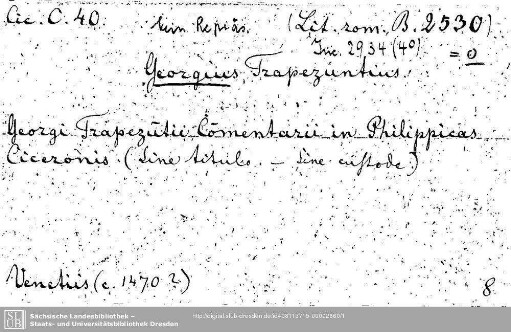 Cic. C. 40. kein Repräs. (Lit. rom. B. 2530)
Inc. 2934 (4°) = 0
Georgius Trapezuntius.
Georgi Trapezūtii Cōmentarii in Philippicas
Ciceronis (sine titulo. – sine custode)
Venetiis (c. 1470?) 8
SLUB Sächsische Landesbibliothek –
Staats- und Universitätsbibliothek Dresden